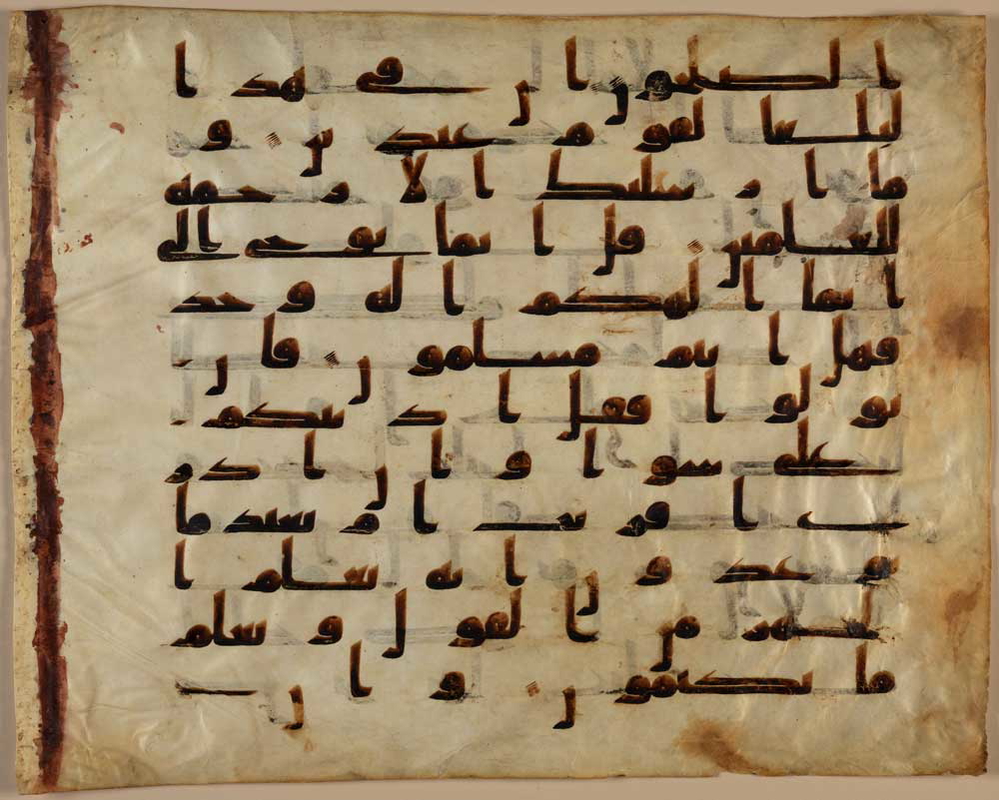 ا الصلحون ان في هذا
لبلغا لقوم عبدين و
ما ارسلنك الا رحمه
للعلمين قل انما يوحى الي
انما الهكم اله وحد
فهل انتم مسلمون فان
تولوا فقل اذنتكم
على سوا وان ادر
ي اقريب ام بعيد ما
توعدون انه يعلم ا
لجهر من القول ويعلم
ما تكتمون وان